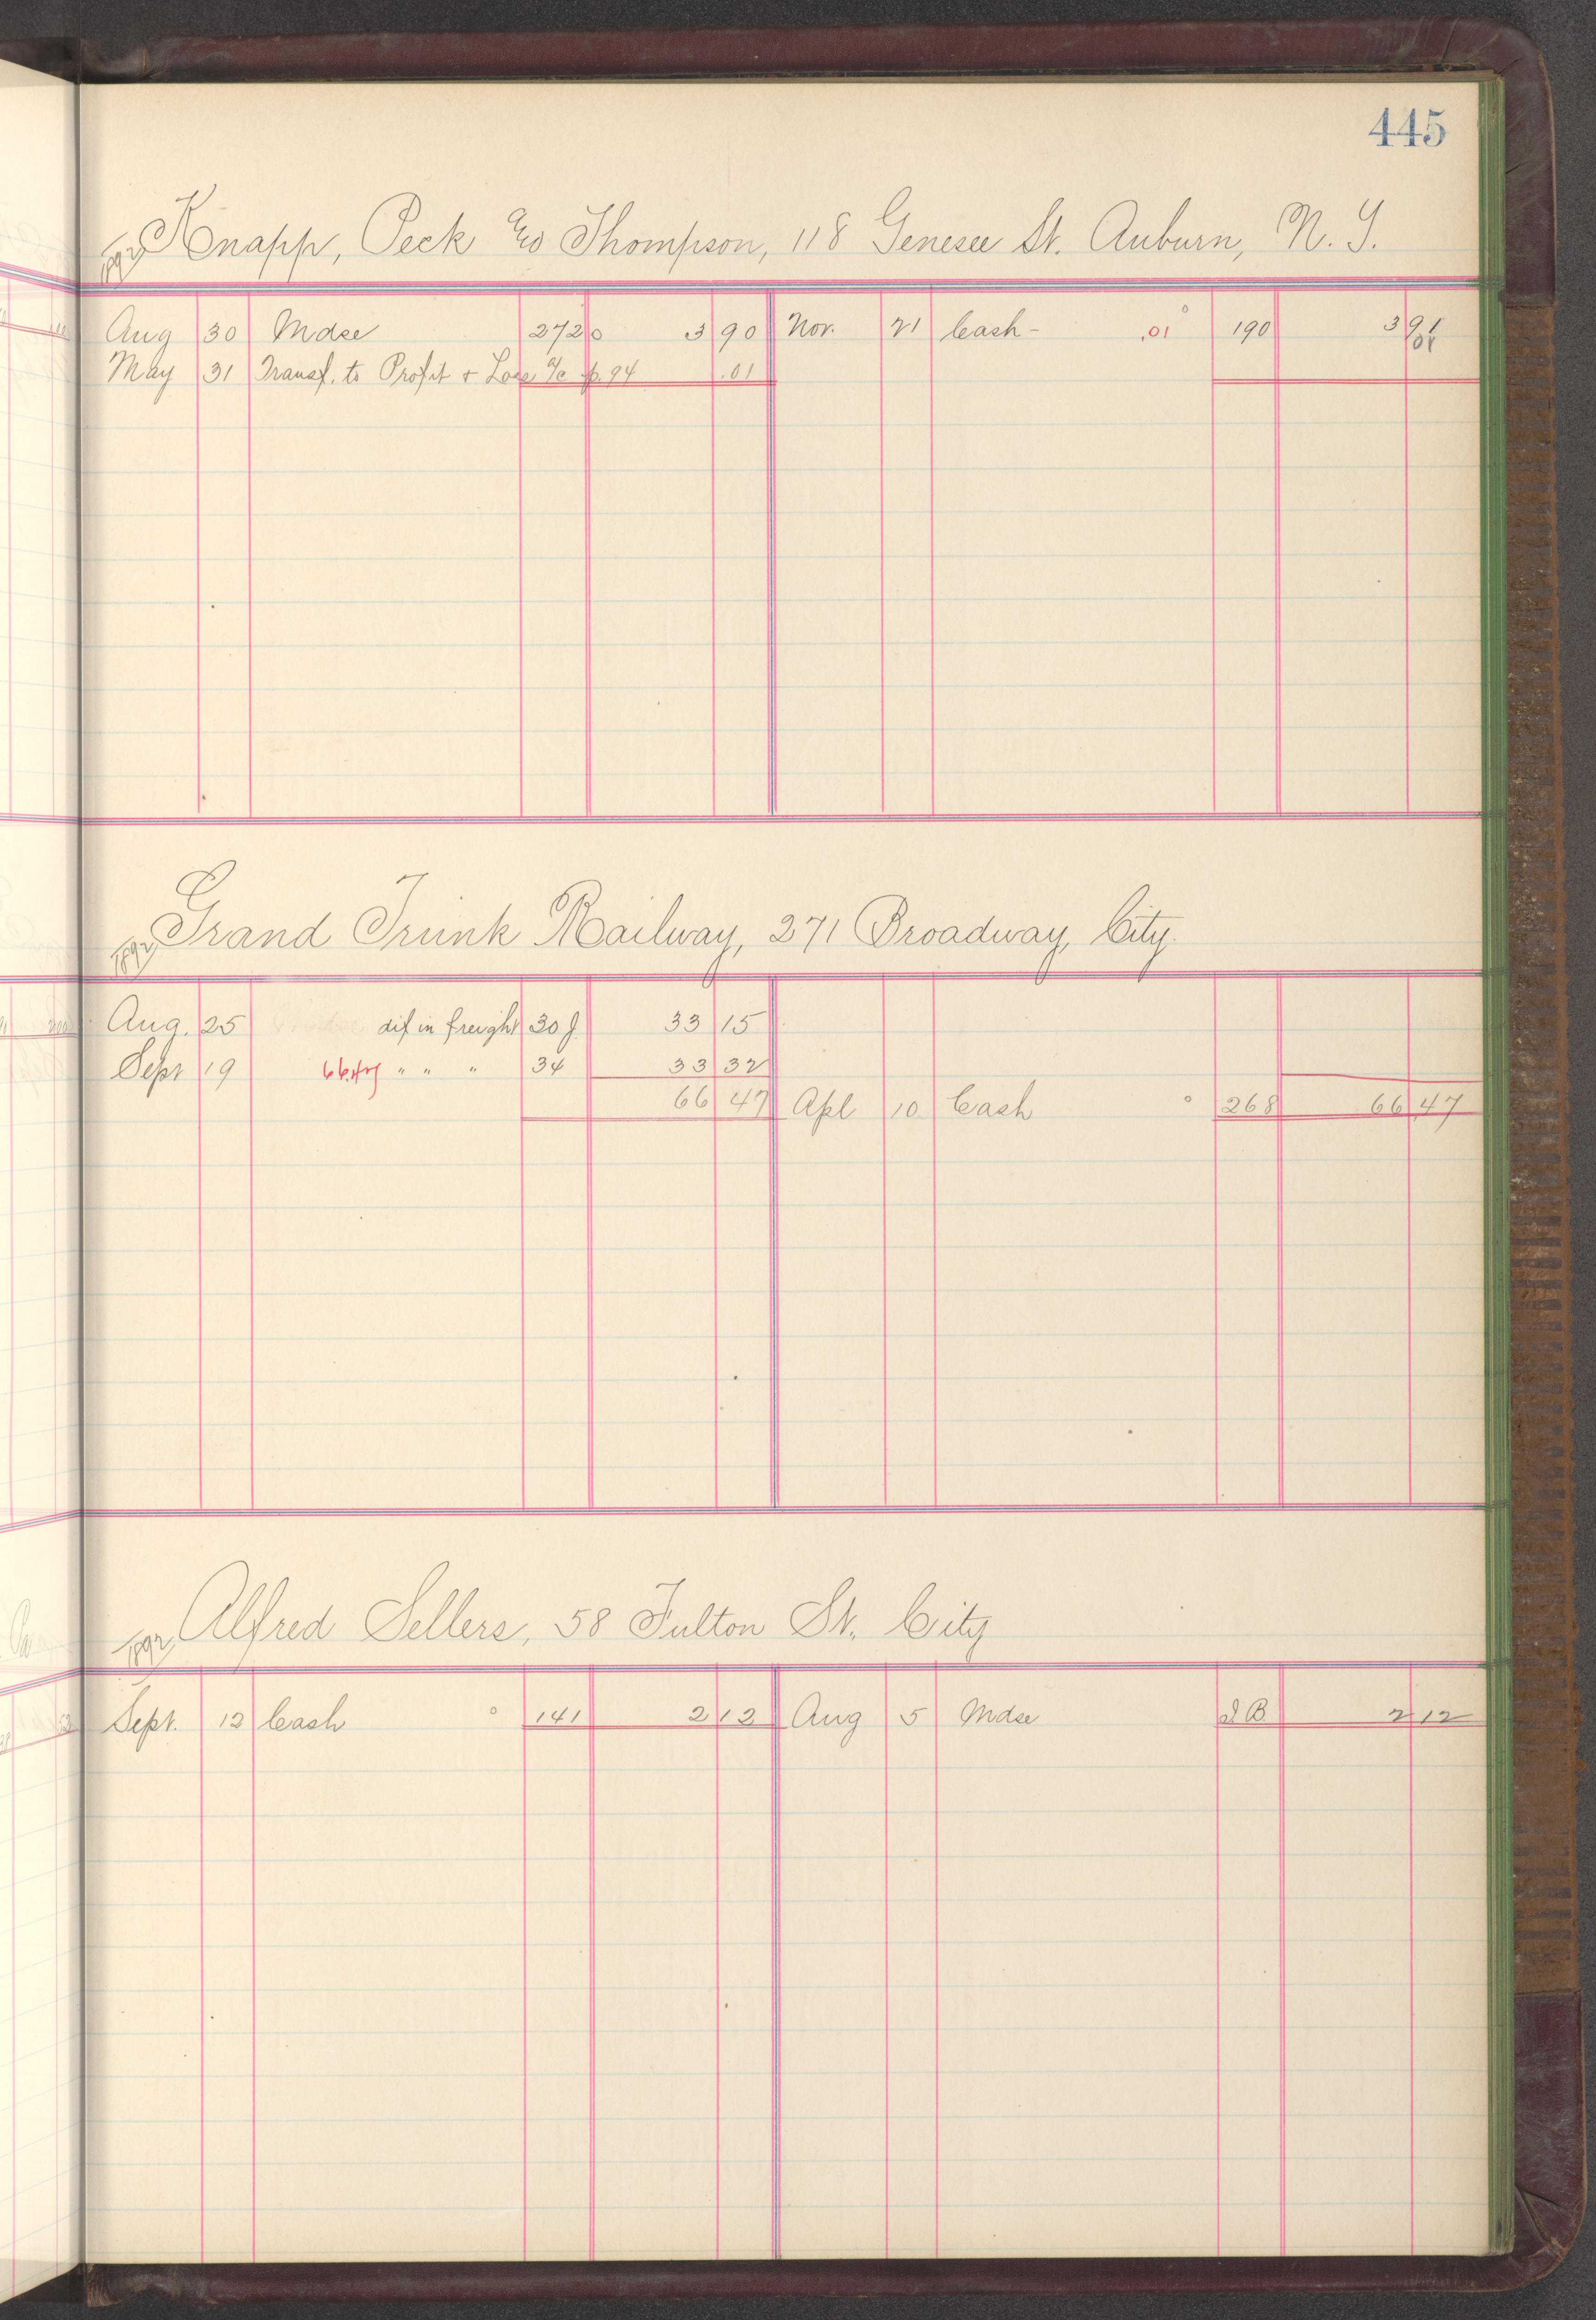 445
1892 Knapp, Peck & Co Thompson, 118 Genesee St. Auburn, N. Y.
Aug 30 Mdse 2720 3 90 Nov. 21 Cash - .01 190 3 91
May 31 Transf. to Profit & Loss a/c p. 94 .01
1892 Grand Trunk Railway, 271 Broadway, City.
Aug. 25 dif in freight 30 33 15
Sept 19 66.47 " " " 34 33 32
66 47 Apl 10 Cash 268 66 47
1892 Alfred Sellers, 58 Fulton St. City
Sept. 12 Cash 141 2 12 Aug 5 Mdse I B 2 12